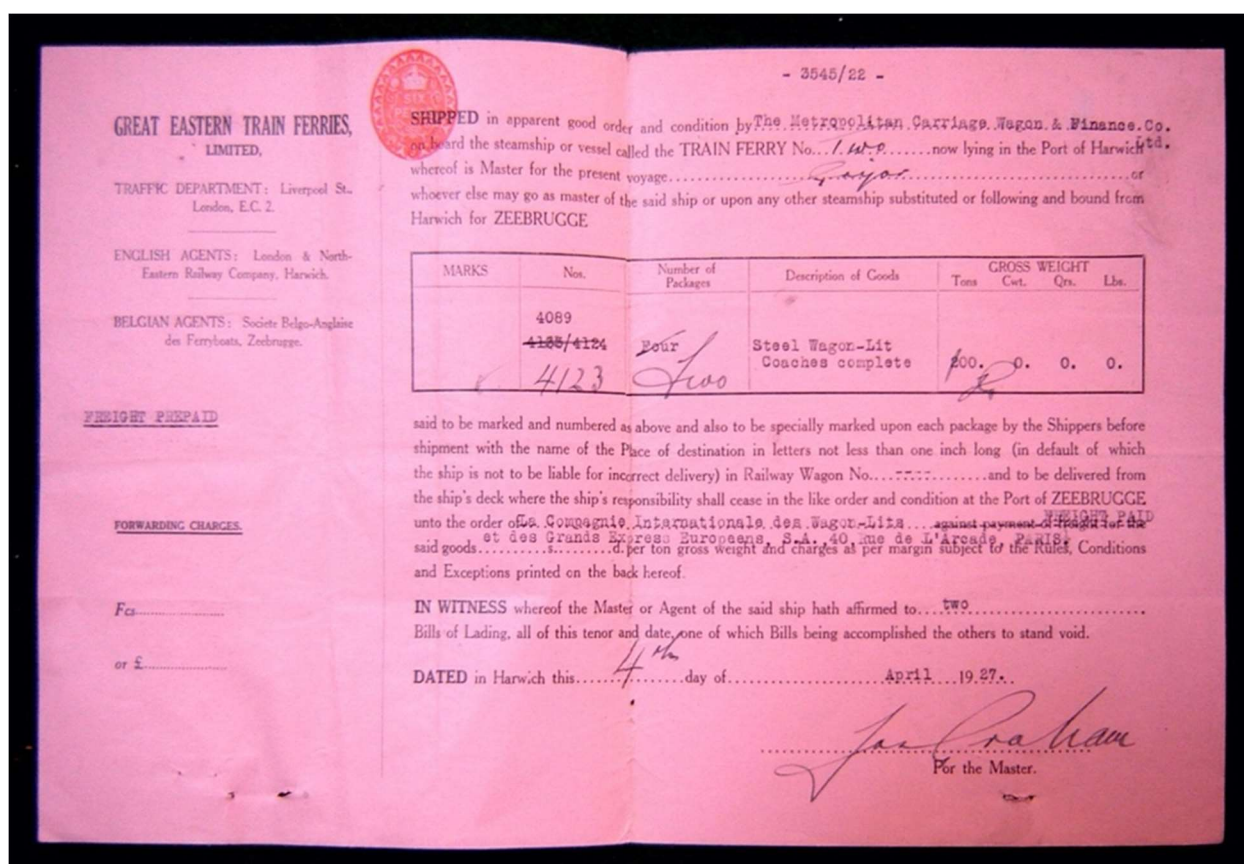 - 3545/22 -
GREAT EASTERN TRAIN FERRIES,
LIMITED,
TRAFFIC DEPARTMENT: Liverpool St.,
London, E.C. 2.
ENGLISH AGENTS: London & North-
Eastern Railway Company, Harwich.
BELGIAN AGENTS: Societe Belgo-Anglaise
des Ferryboats, Zeebrugge.
FREIGHT PREPAID
FORWARDING CHARGES.
Fcs.
or £
SIX
SHIPPED in apparent good order and condition by The Metropolitan Carriage Wagon & Finance Co.
Ltd.
on board the steamship or vessel called the TRAIN FERRY No. Two now lying in the Port of Harwich
whereof is Master for the present voyage or
whoever else may go as master of the said ship or upon any other steamship substituted or following and bound from
Harwich for ZEEBRUGGE
MARKS Nos. Number of Packages Description of Goods GROSS WEIGHT
Tons Cwt. Qrs. Lbs.
4089
4135/4124 Four Steel Wagon-Lit
Coaches complete 200. 0. 0. 0.
4123 Two
said to be marked and numbered as above and also to be specially marked upon each package by the Shippers before
shipment with the name of the Place of destination in letters not less than one inch long (in default of which
the ship is not to be liable for incorrect delivery) in Railway Wagon No. ---- and to be delivered from
the ship's deck where the ship's responsibility shall cease in the like order and condition at the Port of ZEEBRUGGE
FREIGHT PAID
unto the order of La Compagnie Internationale des Wagon-Lits against payment of freight for the
et des Grands Express Europeens, S.A. 40 Rue de L'Arcade, PARIS.
said goods s. d. per ton gross weight and charges as per margin subject to the Rules, Conditions
and Exceptions printed on the back hereof.
IN WITNESS whereof the Master or Agent of the said ship hath affirmed to two
Bills of Lading, all of this tenor and date, one of which Bills being accomplished the others to stand void.
DATED in Harwich this 4th day of April 1927.
Jas Graham
For the Master.